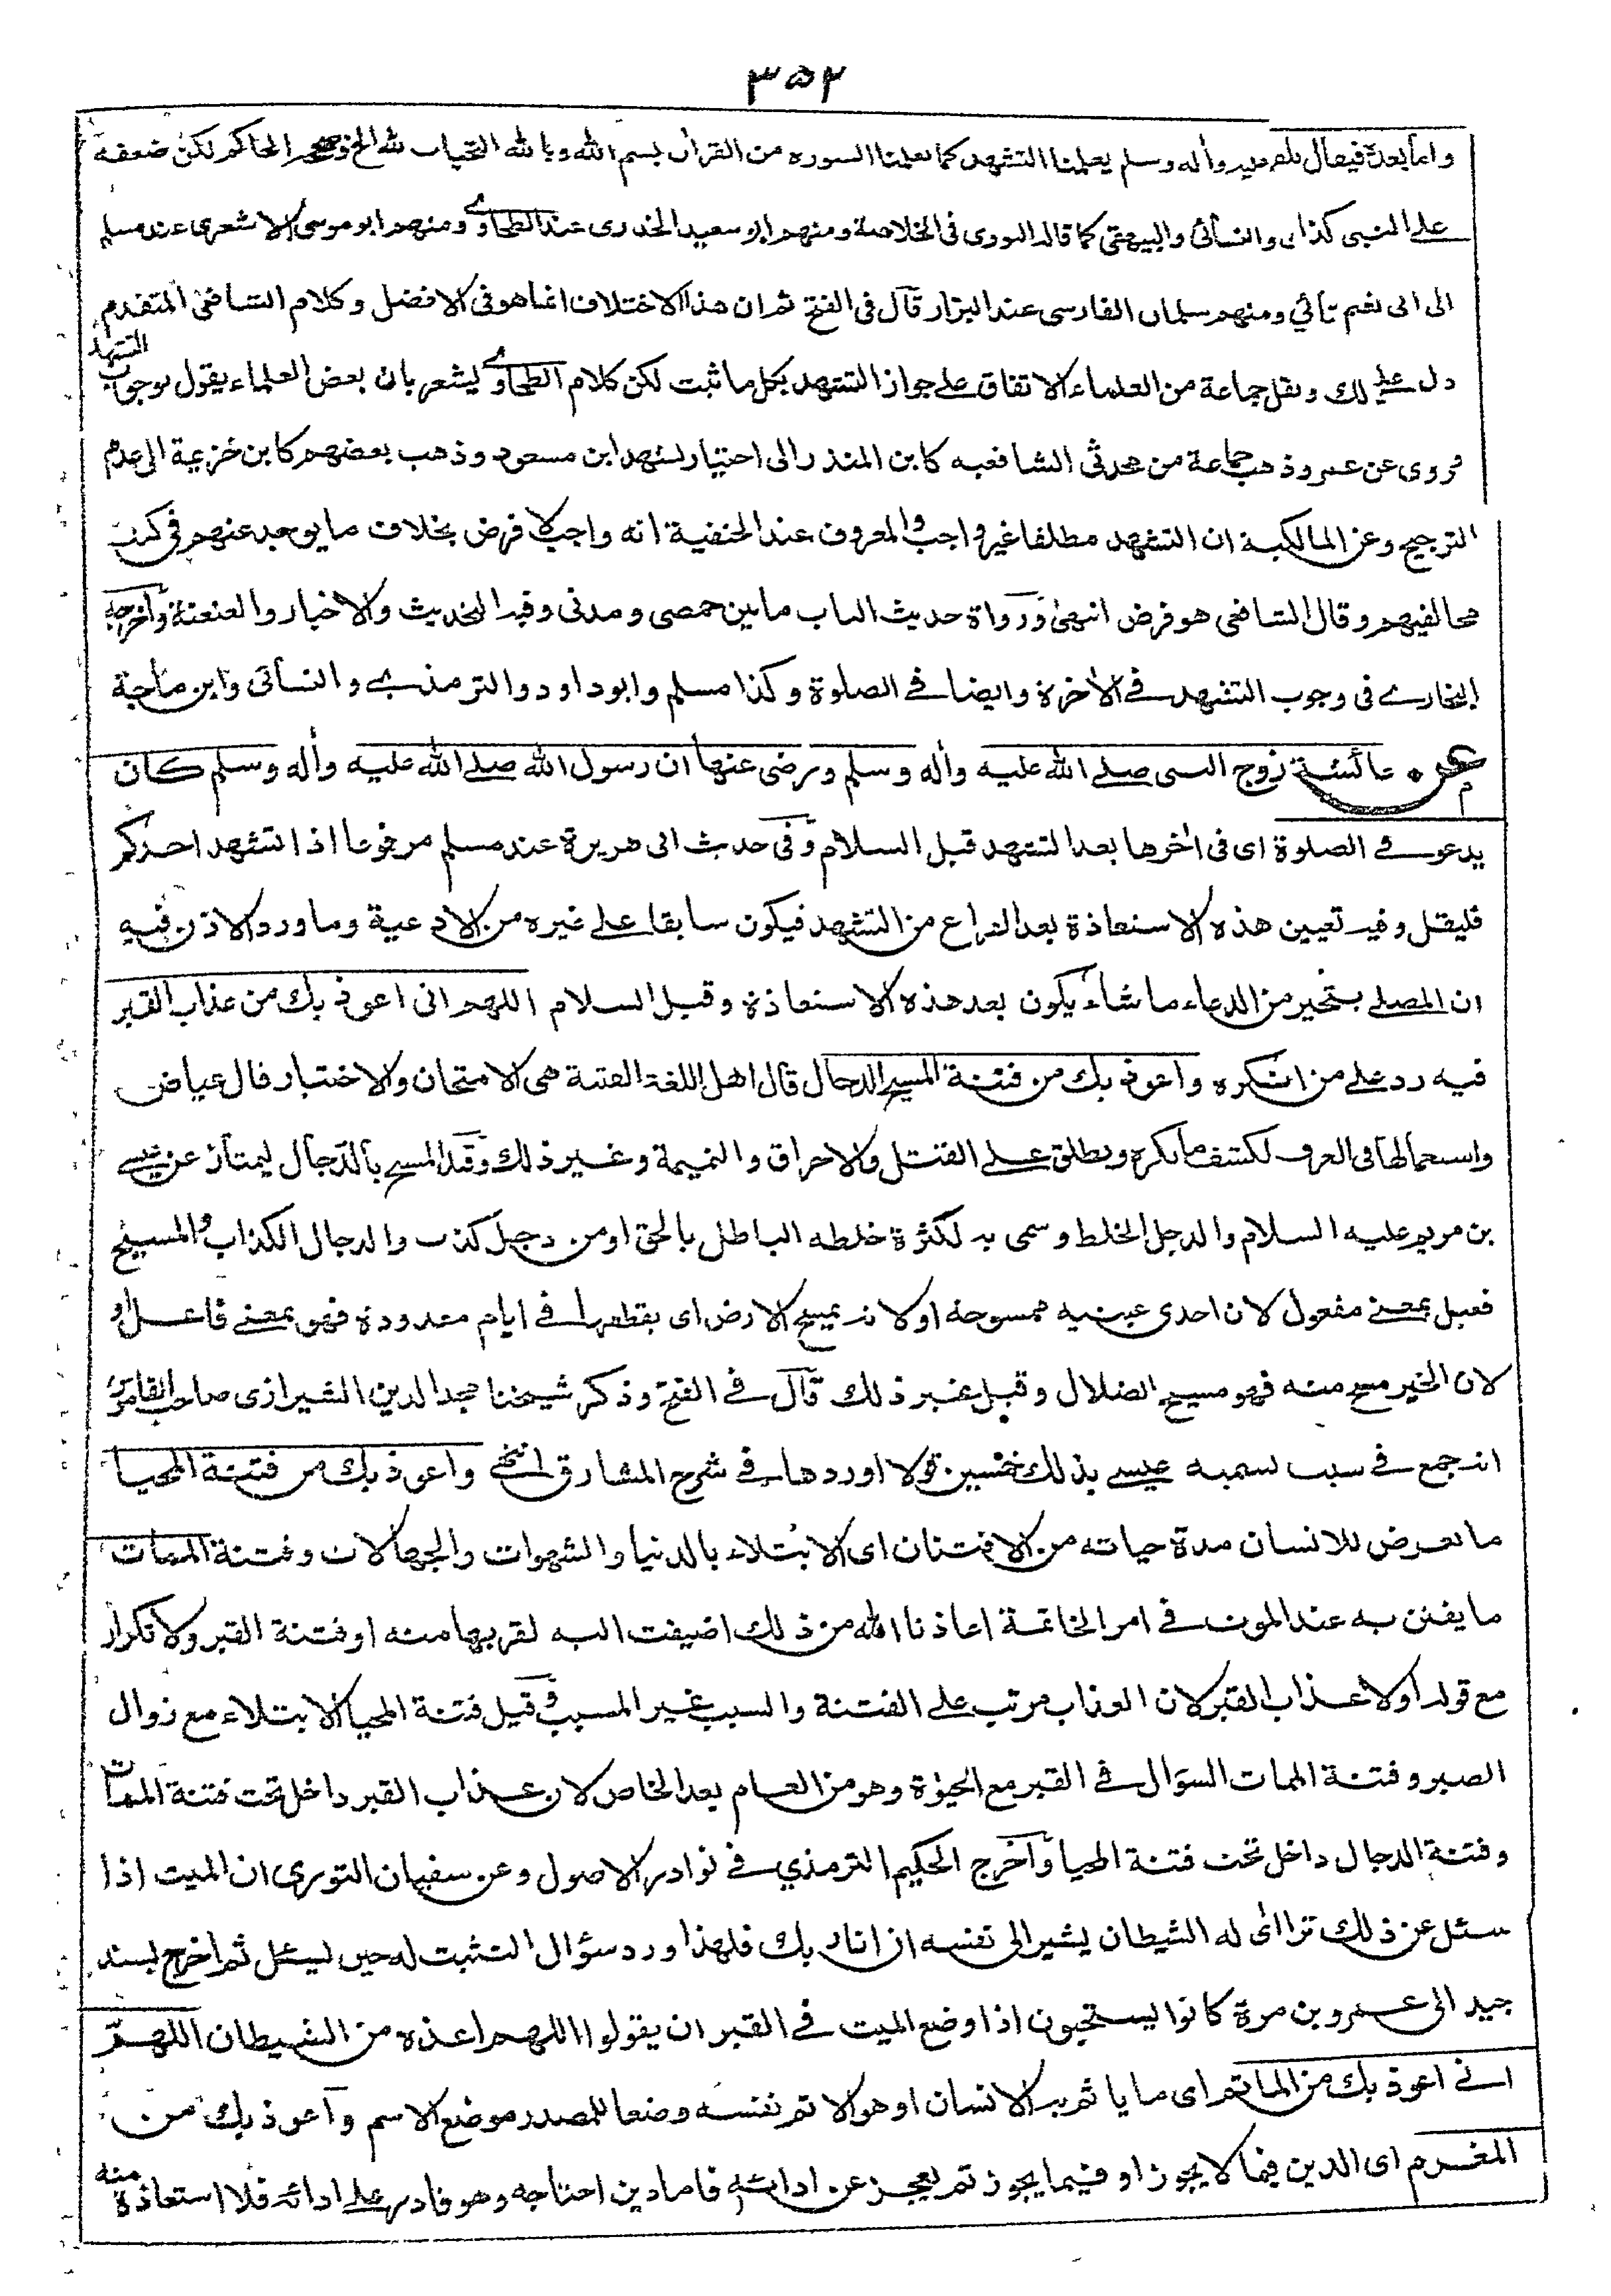 ٣٥٢
وأله وسلم يعلمنا التشهد كما يعلمنا السورة من القرأن بسم الله وبالله التحيات لله الخ وصححه الحاكم لكن ضعفه
والنسائى والبيهقى كما قاله النووى فى الخلاصة ومنهم ابو سعيد الخدرى عند الطحاوے ومنهم ابو موسى الاشعرى عند مسلم
ومنهم سلمان الفارسى عند البزار قال فى الفتح ثم ان هذا الاختلاف انما هو فى الافضل وكلام الشافعى المتقدم
دل على ذلك ونقل جماعة من العلماء الاتفاق على جواز التشهد بكل ما ثبت لكن كلام الطحاوے يشعر بان بعض العلماء يقول بوجوب التشهد
مروى عن عمر وذهب جماعة من محدثى الشافعيه كابن المنذر الى اختيار تشهد ابن مسعود وذهب بعضهم كابن خزيمة الى عدم
الترجيح وعن المالكية ان التشهد مطلقا غير واجب والمعروف عند الحنفية انه واجب لا فرض بخلاف ما يوجد عنهم فى كتب
مخالفيهم وقال الشافعى هو فرض انتهى ورواة حديث الباب ما بين حمصى ومدنى وفيه التحديث والاخبار والعنعنة واخرجه
البخارے فى وجوب التشهد فے الأخرة وايضا فے الصلوة وكذا مسلم وابو داود والترمذے والنسائى وابن ماجة
عن عائشة زوج النبى صلے الله عليه وأله وسلم ورضى عنها ان رسول الله صلے الله عليه وأله وسلم كان
يدعو فے الصلوة اى فى أخرها بعد التشهد قبل السلام وفى حديث ابى هريرة عند مسلم مرفوعا اذا تشهد احدكم
فليقل وفيه تعيين هذه الاستعاذة بعد الفراغ من التشهد فيكون سابقا على غيره من الادعية وما ورد الاذن فيه
ان المصلے يتخير من الدعاء ما شاء يكون بعد هذه الاستعاذة وقبل السلام اللهم انى اعوذ بك من عذاب القبر
فيه رد على من انكره واعوذ بك من فتنة المسيح الدجال قال اهل اللغة الفتنة هى الامتحان والاختبار قال عياض
واستعمالها فى العرف لكشف ما يكره ويطلق على القتل والاحراق والنميمة وغير ذلك وقيد المسيح بالدجال ليمتاز عن عيسے
بن مريم عليه السلام والدجل الخلط وسمى به لكثرة خلطه الباطل بالحق او من دجل كذب والدجال الكذاب والمسيح
فعيل بمعنے مفعول لان احدى عينيه ممسوحة او لانه يمسح الارض اى يقطعها فے ايام معدودة فهو بمعنے فاعل او
لان الخير مسح منه فهو مسيح الضلال وقيل غير ذلك قال فے الفتح وذكر شيخنا مجد الدين الشيرازى صاحب القاموس
انه جمع فے سبب تسمية عيسے بذلك خمسين قولا اوردها فے شرح المشارق انتهے واعوذ بك من فتنة المحيا
ما يعرض للانسان مدة حياته من الافتنان اى الابتلاء بالدنيا والشهوات والجهالات وفتنة الممات
ما يفتن به عند الموت فے امر الخاتمة اعاذنا الله من ذلك اضيفت اليه لقربها منه او فتنة القبر ولا تكرار
مع قوله اولا عذاب القبر لان العذاب مرتب على الفتنة والسبب غير المسبب وقيل فتنة المحيا الابتلاء مع زوال
الصبر وفتنة الممات السؤال فے القبر مع الحيرة وهو من العام بعد الخاص لان عذاب القبر داخل تحت فتنة الممات
وفتنة الدجال داخل تحت فتنة المحيا وأخرج الحكيم الترمذي فے نوادر الاصول وعن سفيان الثورى ان الميت اذا
سئل عن ذلك تراأى له الشيطان يشير الى نفسه ان انا ربك فلهذا ورد سؤال التثبت له حين يسئل ثم اخرج بسند
جيد الى عمرو بن مرة كانوا يستحبون اذا وضع الميت فے القبر ان يقولوا اللهم اعذه من الشيطان اللهم
انے اعوذ بك من الماثم اى ما ياثم به الانسان او هو الاثم نفسه وضعا للمصدر موضع الاسم وأعوذ بك من
المغرم اى الدين فيما لا يجوز او فيما يجوز ثم يعجز عن ادائه فاما دين احتاجه وهو قادر على ادائه فلا استعاذة منه